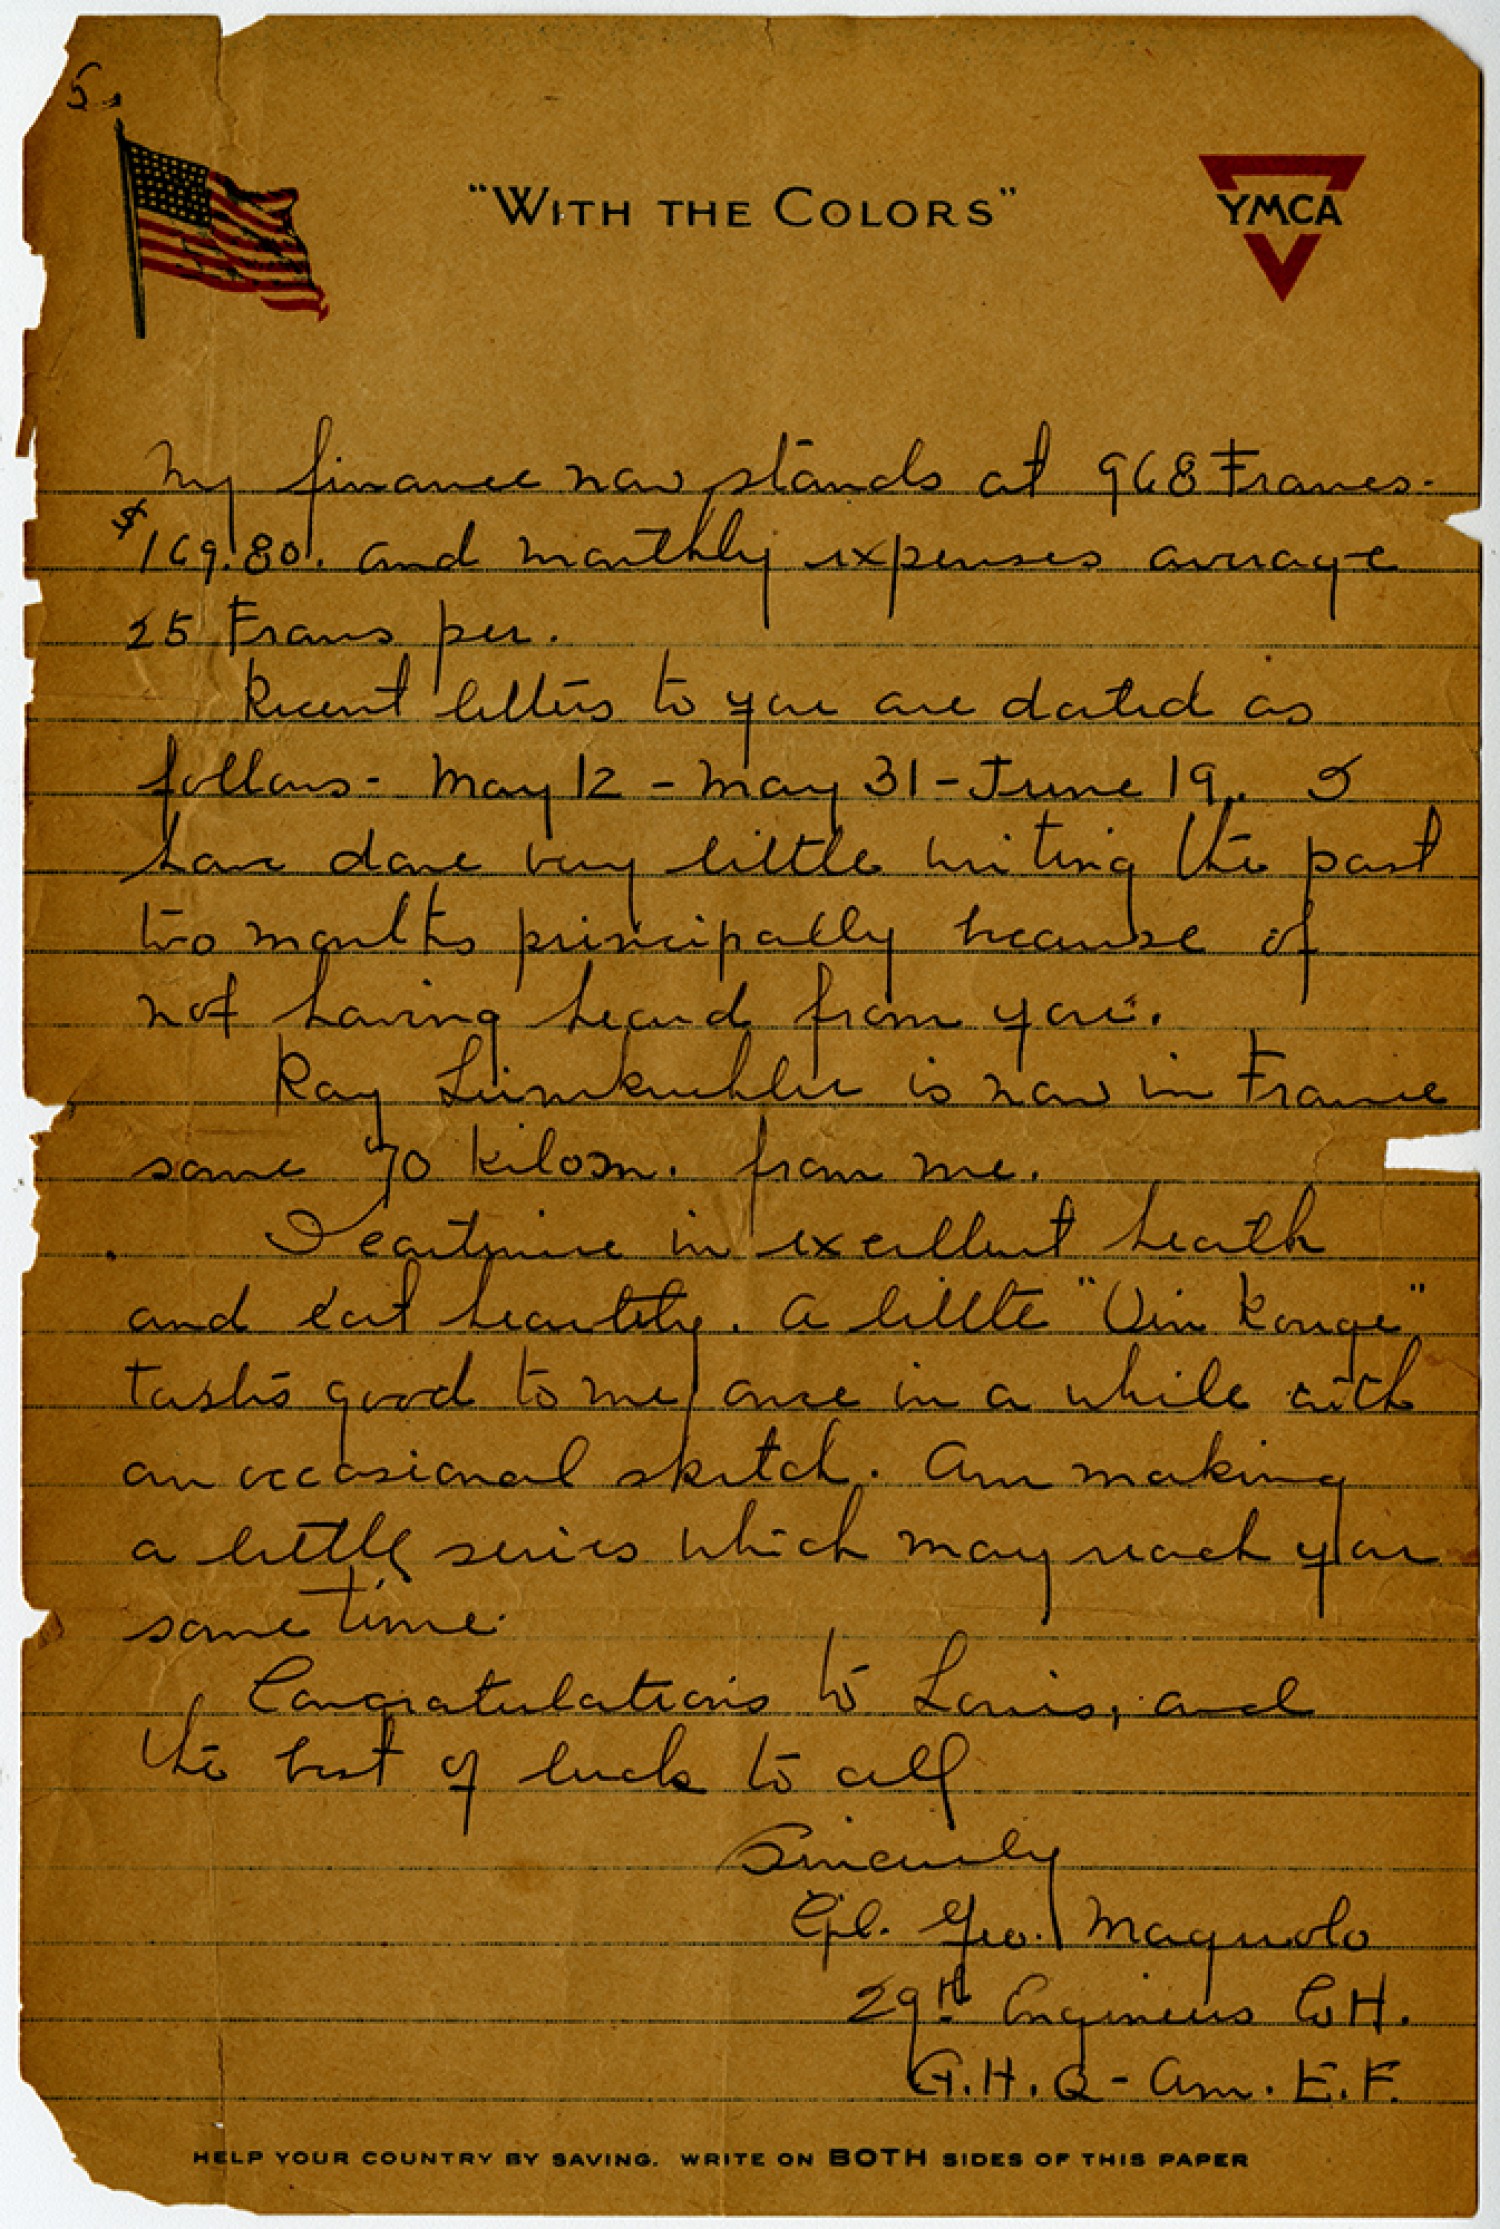 5.
"WITH THE COLORS"
YMCA
My finance now stands at 968 Francs-
$169.80. and monthly expenses average
25 Francs per.
Recent letters to you are dated as
follows- May 12 - May 31 - June 19. I
have done very little writing the past
two months principally because of
not having heard from you.
Ray Leimkuehler is now in France
some 70 kilom. from me.
I continue in excellent health
and eat heartily. A little "Vin Rouge"
tastes good to me once in a while with
an occasional sketch. Am making
a little series which may reach you
some time.
Congratulations to Louis, and
the best of luck to all
Sincerely
Cpl. Geo. Magnolo
29th Engineers Co H.
G.H.Q - Am. E.F.
HELP YOUR COUNTRY BY SAVING. WRITE ON BOTH SIDES OF THIS PAPER